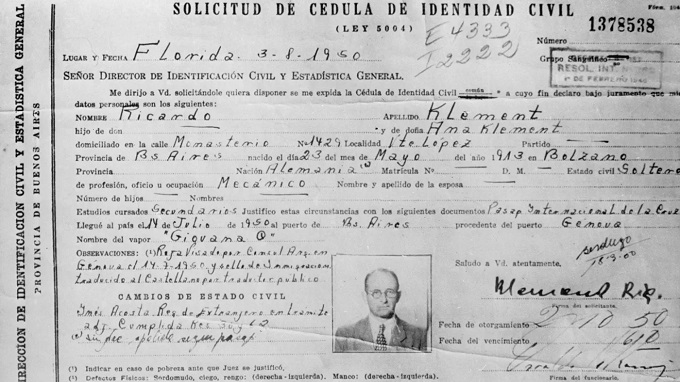 SOLICITUD DE CEDULA DE IDENTIDAD CIVIL
(LEY 5004)
E4333
I2222
1378538
Número
LUGAR Y FECHA Florida 3-8-1950
Grupo Sanguíneo
RESOL. INT.
SEÑOR DIRECTOR DE IDENTIFICACIÓN CIVIL Y ESTADÍSTICA GENERAL.
Me dirijo a Vd. solicitándole quiera disponer se me expida la Cédula de Identidad Civil a cuyo fin declaro bajo juramento que mis
datos personales son los siguientes:
NOMBRE Ricardo APELLIDO Klement
hijo de don y de doña Ana Klement
domiciliado en la calle Monasterio Nº 1429 Localidad Vte. López Partido
Provincia de Bs. Aires nacido el día 23 del mes de Mayo del año 1913 en Bolzano
Provincia Nación Alemania Matrícula Nº D. M. Estado civil Soltero
de profesión, oficio u ocupación Mecánico Nombre y apellido de la esposa
Número de hijos Nombres
Estudios cursados Secundarios Justifico estas circunstancias con los siguientes documentos Pasap. Internacional de la Cruz
Llegué al país el 14 de Julio de 1950 al puerto de Bs. Aires precedente del puerto Genova
Nombre del vapor "Giovana C"
OBSERVACIONES: por Consul Arg. en
Genova el 14-7-1950 y sello de Inmigracion
traducido al Castellano por traductor publico
Saludo a Vd. atentamente.
CAMBIOS DE ESTADO CIVIL
Firma del solicitante.
Inés Acosta Reg. de Extranjero en tramite
Fecha de otorgamiento 2 10 50
Fecha de vencimiento
Firma del funcionario.
(¹) Indicar en caso de pobreza ante que Juez se justificó,
(²) Defectos Físicos: Sordomudo, ciego, rengo: (derecha-izquierda). Manco: (derecha-izquierda).
DIRECCION DE IDENTIFICACION CIVIL Y ESTADISTICA GENERAL
PROVINCIA DE BUENOS AIRES